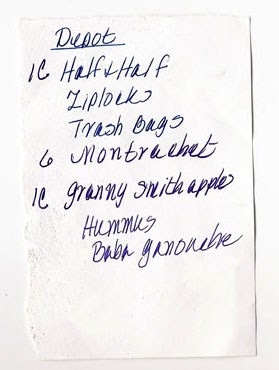 Depot
1C Half & Half
Ziplocks
Trash Bags
6 Montrachet
1C granny smith apples
Hummus
Baba ganouche